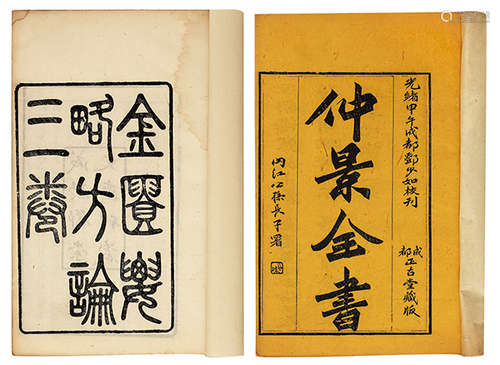 光緒甲午成都鄧少如校刊
成都正古堂藏版
仲景全書
內江公孫長子署
金匱要
略方論
三卷